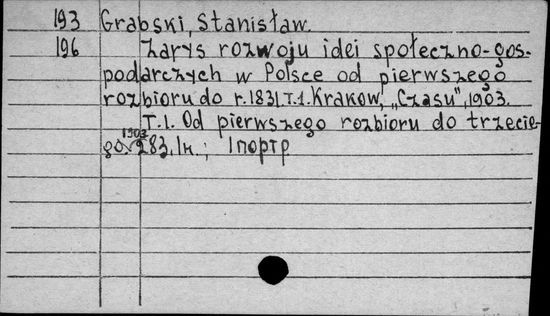 193 Grabski, Stanisław.
196 Zarys rozwoju idei społeczno-gos-
podarczych w Polsce od pierwszego
rozbioru do r. 1831 T.1. Krakow, „Czasu", 1903.
T.1. Od pierwszego rozbioru do trzecie-
1903
go. 283, 1н.; 1портр